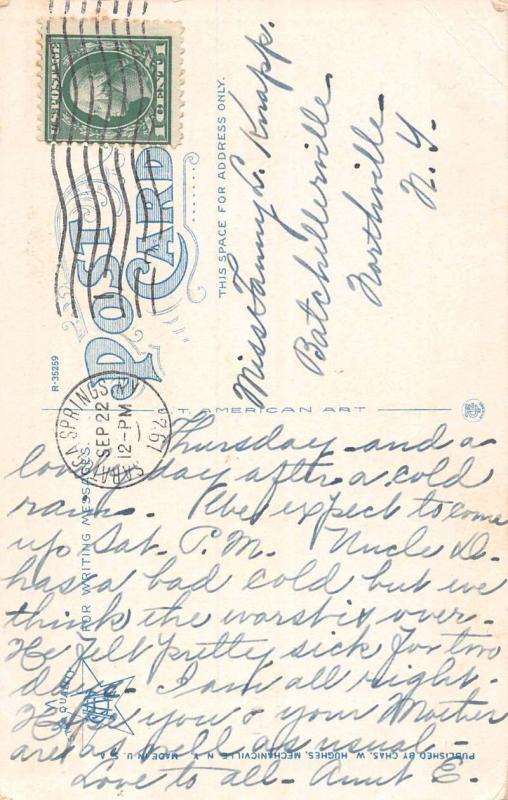 U.S. POSTAGE
1 CENT 1
POST
CARD
THIS SPACE FOR ADDRESS ONLY.
Miss Fanny L. Knapp.
Batchellerville
Northville
N. Y.
R-35259
SARATOGA SPRINGS
SEP 22
12-PM
AMERICAN ART
FOR WRITING MESSAGES.
Thursday - and a
lovely day after a cold
rain. We expect to come
up Sat. P.M. Uncle D.
has a bad cold but we
think the worst is over.
He felt pretty sick for two
days. I am all right.
Hope you & your Mother
are as well as usual -
Love to all - Aunt E.
QUALITY
PUBLISHED BY CHAS. W. HUGHES, MECHANICVILLE, N. Y. MADE IN U. S. A.